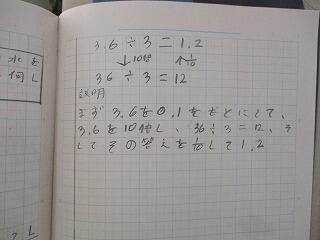 水を
何し
3.6÷3=1.2
↓10倍 ↑1/10
36÷3=12
説明
まず3.6を0.1をもとにして、
3.6を10倍し、36÷3=12、そ
してその答えを1/10して1.2